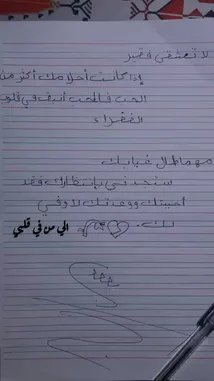 لا تعشقي فقير
إذا كانت أحلامك أكثر من
الحب فالحب أنيق في قلوب
الفقراء
مهما طال غيابك
ستجدني بإنتظارك فقد
أحببتك ووعدتك لاوفي
لك.
الي من في قلبي